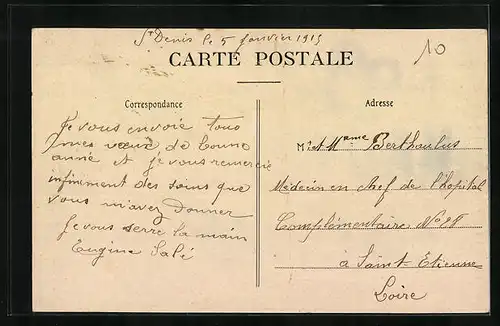 St Denis le 5 Janvier 1915
10
CARTE POSTALE
Correspondance
Je vous envoie tous
mes vœux de bonne
anné et je vous remercie
infiniment des soins que
vous m'avez Donner
Je vous serre la main
Eugène Salé
Adresse
Mr et Mme Berthoulus
Médecin en chef de l'hopital
Complémentaire No
à Saint-Etienne
Loire